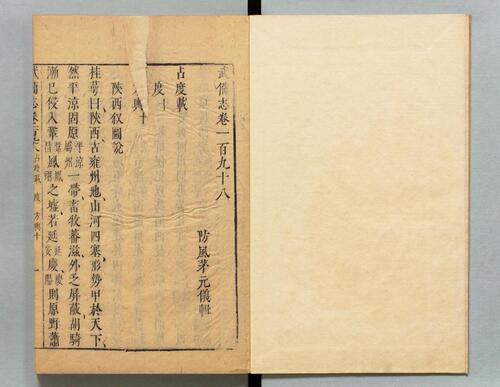 武備志卷一百九十八
防風茅元儀輯
占度載
度十
輿十
陝西叙圖說
桂萼曰陝西古雍州地山河四塞形勢甲於天下
然平涼固原平涼一帶畜牧蕃滋外乏屏蔽胡騎
漸已侵入鞏昌鳳之墟若延延安慶慶陽則原野蕭
武備志卷 占度載 度 方輿十 一